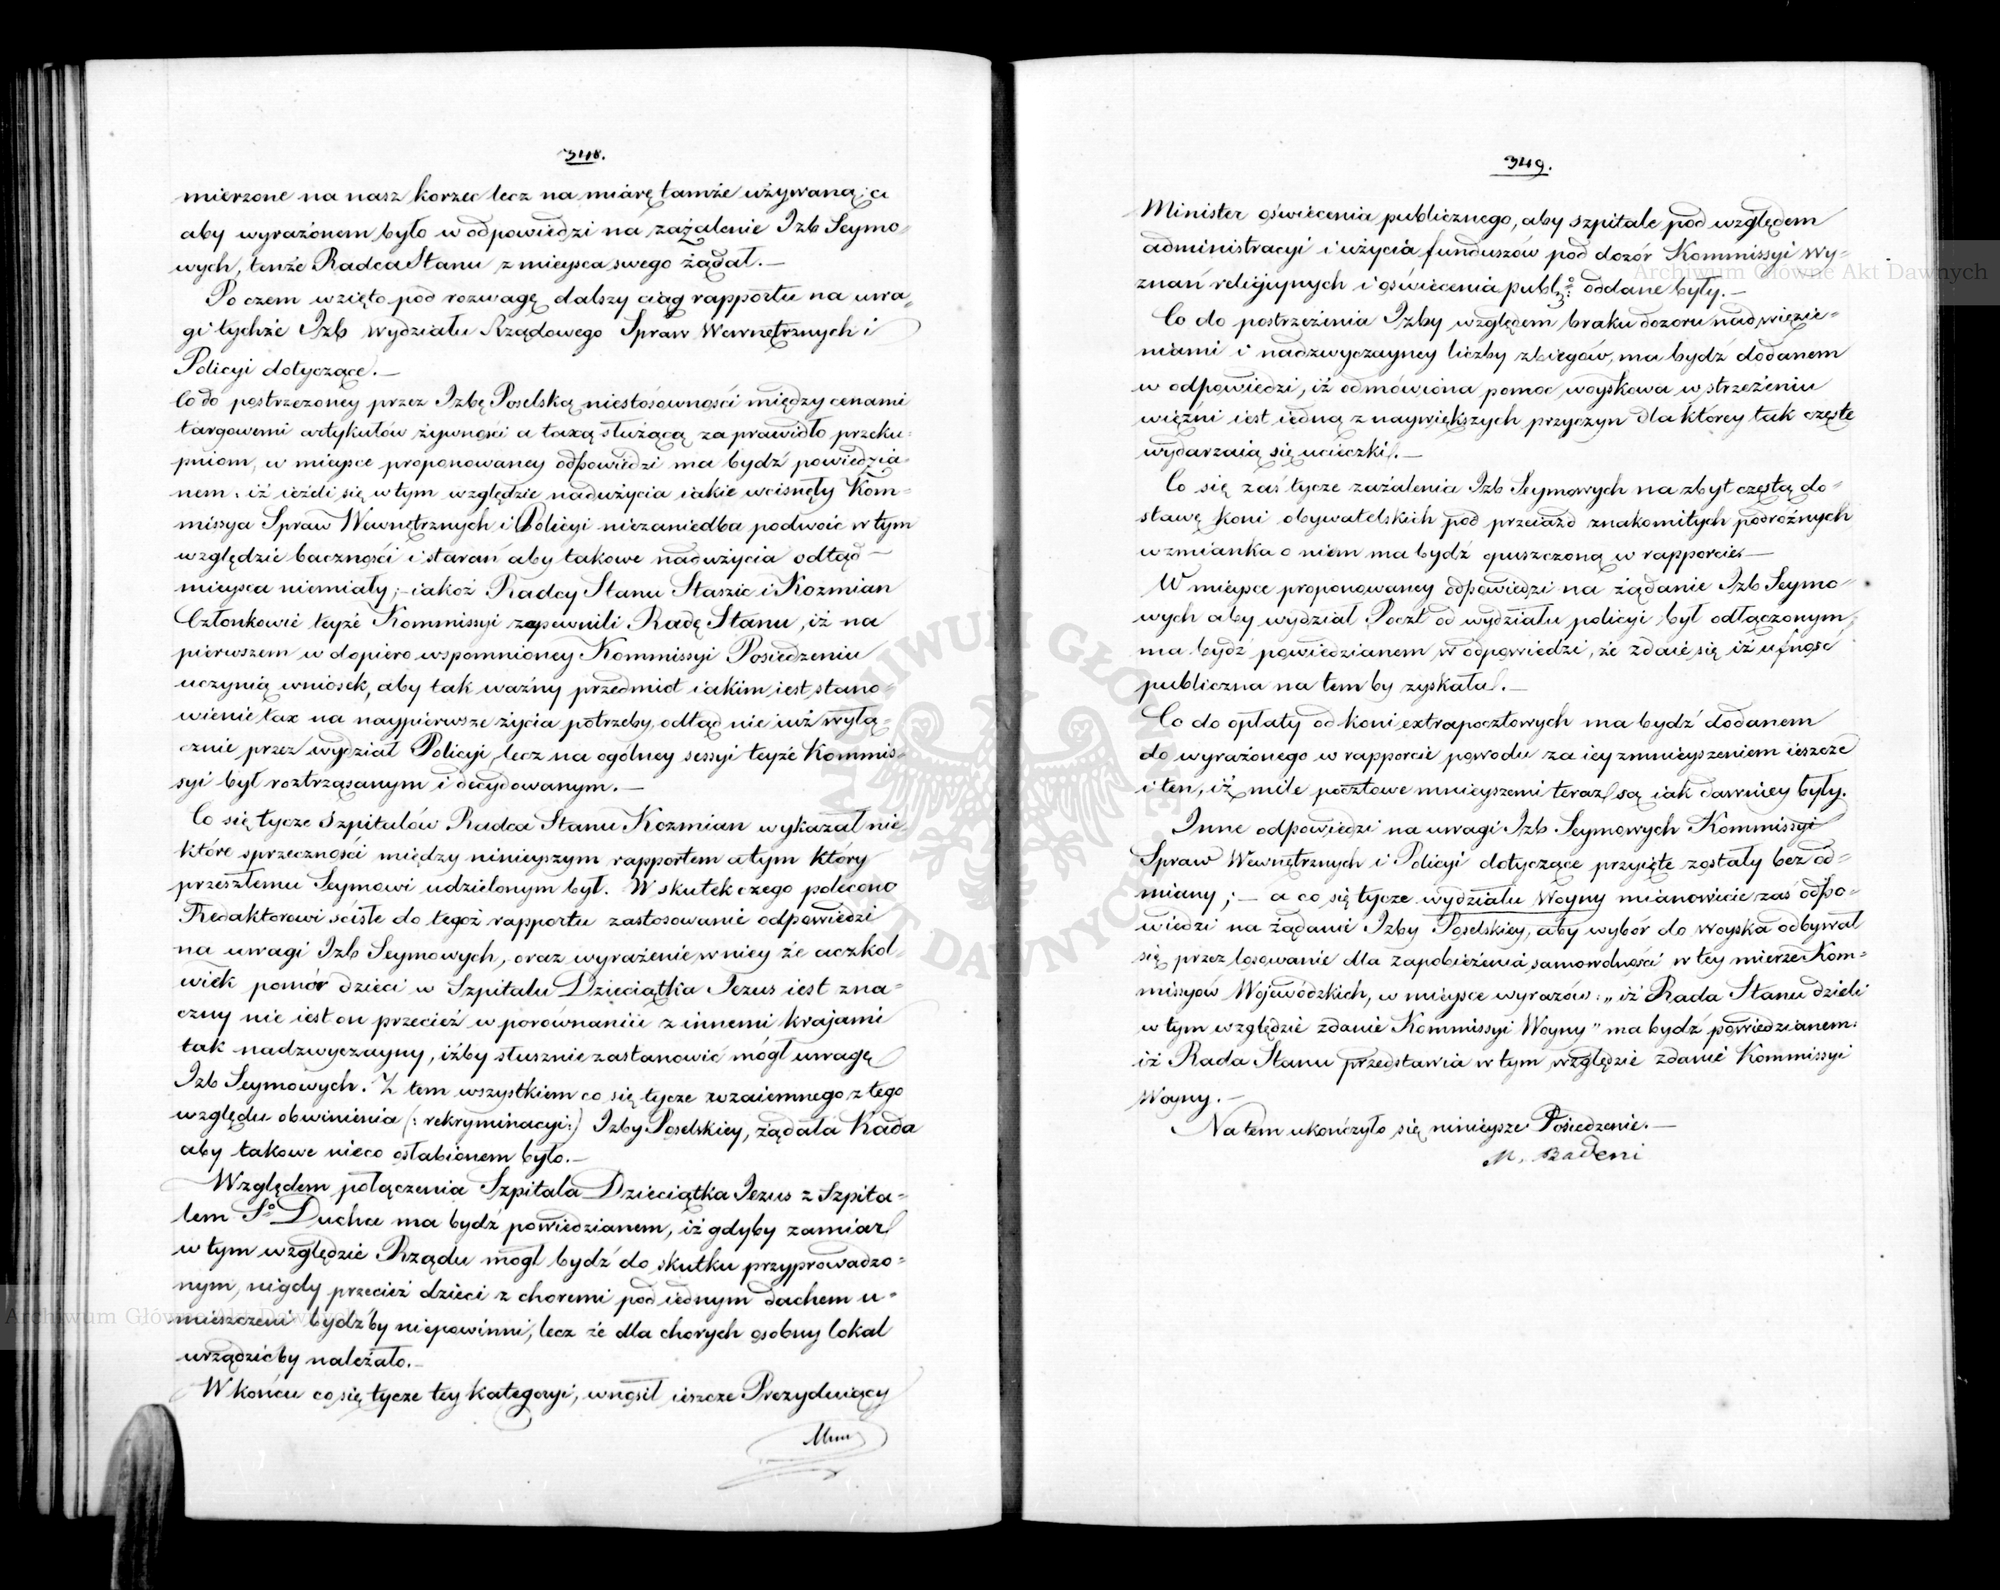 348.
mierzone na nasz korzec lecz na miarę tamże używaną; a
aby wyrażonem było w odpowiedzi na zażalenie Izb Seymo-
wych, tenże Radca Stanu z mieysca swego żądał.—
Po czem wzięto pod rozwagę dalszy ciąg rapportu na uwa-
gi tychże Izb Wydziału Rządowego Spraw Wewnętrznych i
Policyi dotyczące.—
Co do postrzeżoney przez Izbę Poselską niestósowności między cenami
targowemi artykułów żywności a taxą służącą za prawidło przeku-
pniom, w mieysce proponowaney odpowiedzi ma bydź powiedzia-
nem: iż ieżeli się w tym względzie nadużycia iakie wcisnęły Kom-
missya Spraw Wewnętrznych i Policyi niezaniedba podwoić w tym
względzie baczności i starań aby takowe nadużycia odtąd—
mieysca niemiały;—iakoż Radcy Stanu Staszic i Kozmian
Członkowie teyże Kommissyi zapewnili Radę Stanu, iż na
pierwszem w dopiero wspomnioney Kommissyi Posiedzeniu
uczynią wniosek, aby tak ważny przedmiot iakim iest stano-
wienie tax na naypierwsze życia potrzeby, odtąd nie iuż wyłą-
cznie przez wydział Policyi, lecz na ogólney sessyi teyże Kommis-
syi był roztrząsanym i decydowanym.—
Co się tycze Szpitalów Radca Stanu Kozmian wykazał nie-
które sprzeczności między ninieyszym rapportem a tym który
przeszłemu Seymowi udzielonym był. W skutek czego polecono
Redaktorowi ściśle do tegoż rapportu zastosowanie odpowiedzi
na uwagi Izb Seymowych, oraz wyrażenie w niey że aczkol-
wiek pomór dzieci w Szpitalu Dzieciątka Jezus iest zna-
czny nie iest on przecież w porównaniu z innemi krajami
tak nadzwyczayny, iżby słusznie zastanowić mógł uwagę
Izb Seymowych. Z tem wszystkiem co się tycze wzaiemnego z tego
względu obwinienia (: rekryminacyi:) Izby Poselskiey, żądała Rada
aby takowe nieco osłabionem było.—
Względem połączenia Szpitala Dzieciątka Jezus z Szpita-
lem Sgo Ducha ma bydź powiedzianem, iż gdyby zamiar
w tym względzie Rządu mógł bydź do skutku przyprowadzo-
nym, nigdy przecież dzieci z choremi pod iednym dachem u-
mieszczeni bydźby niepowinni, lecz że dla chorych osobny lokal
urządzićby należało.—
W końcu co się tycze tey kategoryi, wnosił ieszcze Prezyduiący
349.
Minister oświecenia publicznego, aby szpitale pod względem
administracyi i użycia funduszów pod dozór Kommissyi Wy-
znań religiynych i oświecenia publ:go oddane były.—
Co do postrzeżenia Izby względem braku dozoru nad więzie-
niami i nadzwyczayney liczby zbiegów, ma bydź dodanem
w odpowiedzi, iż odmówiona pomoc woyskowa w strzeżeniu
więźni iest iedną z naywiększych przyczyn dla którey tak częste
wydarzaią się ucieczki.—
Co się zaś tycze zażalenia Izb Seymowych na zbyt częstą do-
stawę koni obywatelskich pod przeiazd znakomitych podróżnych
wzmianka o niem ma bydź opuszczoną w rapporcie.—
W mieysce proponowaney odpowiedzi na żądanie Izb Seymo-
wych aby wydział Poczt od wydziału policyi był odłączonym,
ma bydź powiedzianem w odpowiedzi, że zdaie się iż ufność
publiczna na tem by zyskała.—
Co do opłaty od koni extrapocztowych ma bydź dodanem
do wyrażonego w rapporcie powodu za iey zmnieyszeniem ieszcze
i ten, iż mile pocztowe mnieyszemi teraz są iak dawniey były.
Inne odpowiedzi na uwagi Izb Seymowych Kommissyi
Spraw Wewnętrznych i Policyi dotyczące przyięte zostały bez od-
miany;— a co się tycze wydziału Woyny mianowicie zaś odpo-
wiedzi na żądanie Izby Poselskiey, aby wybór do woyska odbywał
się przez losowanie dla zapobieżenia samowolności w tey mierze Kom-
missyów Wojewódzkich, w mieysce wyrazów: „iż Rada Stanu dzieli
w tym względzie zdanie Kommissyi Woyny" ma bydź powiedzianem:
iż Rada Stanu przedstawia w tym względzie zdanie Kommissyi
Woyny.—
Na tem ukończyło się ninieysze Posiedzenie.—
M. Badeni
Archiwum Główne Akt Dawnych
Archiwum Główne Akt Dawnych
ARCHIWUM GŁÓWNE AKT DAWNYCH